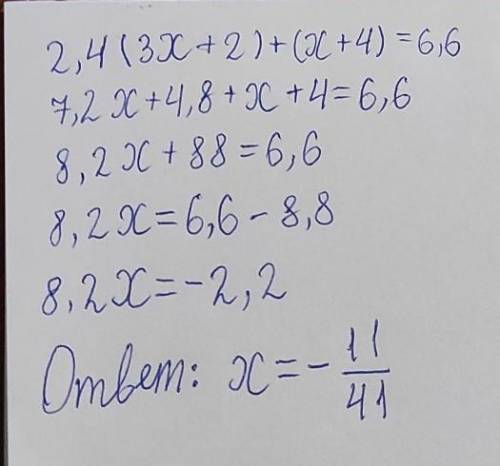 2,4(3x+2)+(x+4)=6,6
7,2x+4,8+x+4=6,6
8,2x+88=6,6
8,2x=6,6-8,8
8,2x=-2,2
Ответ: x=-11/41